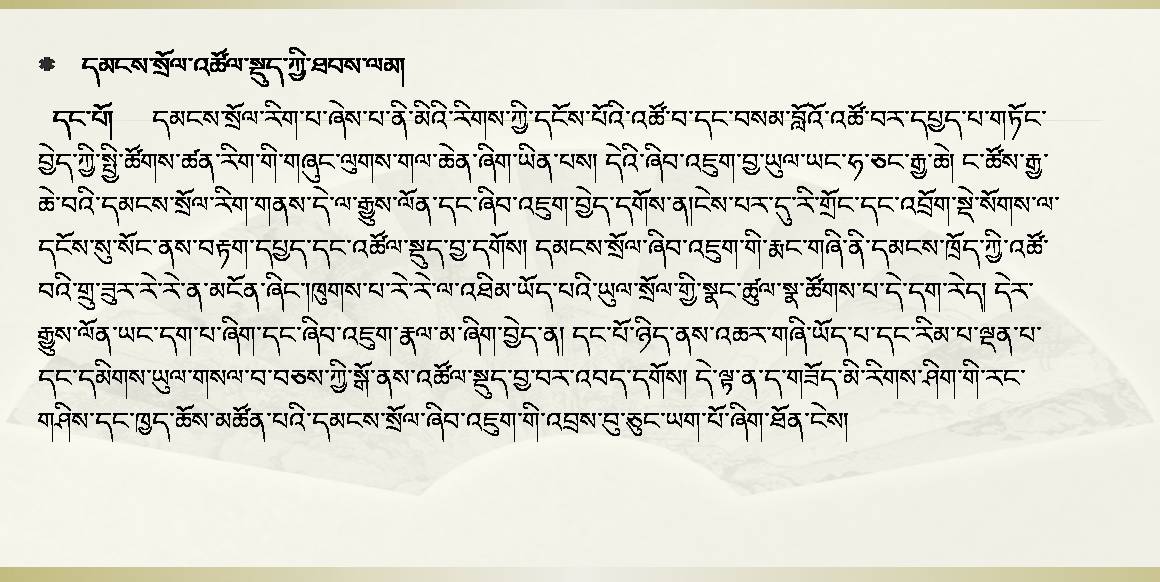 དམངས་སྲོལ་འཚོལ་སྡུད་ཀྱི་ཐབས་ལམ།
དང་པོ། དམངས་སྲོལ་རིག་པ་ཞེས་པ་ནི་མིའི་རིགས་ཀྱི་དངོས་པོའི་འཚོ་བ་དང་བསམ་བློའོ་འཚོ་བར་དཔྱད་པ་གཏོང་
བྱེད་ཀྱི་སྤྱི་ཚོགས་ཚན་རིག་གི་གཞུང་ལུགས་གལ་ཆེན་ཞིག་ཡིན་པས། དེའི་ཞིབ་འཇུག་བྱ་ཡུལ་ཡང་ཧ་ཅང་རྒྱ་ཆེ། ང་ཚོས་རྒྱ་
ཆེ་བའི་དམངས་སྲོལ་རིག་གནས་དེ་ལ་རྒྱུས་ལོན་དང་ཞིབ་འཇུག་བྱེད་དགོས་ན།ངེས་པར་དུ་རི་གྲོང་དང་འབྲོག་སྡེ་སོགས་ལ་
དངོས་སུ་སོང་ནས་བརྟག་དཔྱད་དང་འཚོལ་སྡུད་བྱ་དགོས། དམངས་སྲོལ་ཞིབ་འཇུག་གི་རྨང་གཞི་ནི་དམངས་ཁྲོད་ཀྱི་འཚོ་
བའི་གྲུ་ཟུར་རེ་རེ་ན་མངོན་ཞིང་།ཁུགས་པ་རེ་རེ་ལ་འཐིམ་ཡོད་པའི་ཡུལ་སྲོལ་གྱི་སྣང་ཚུལ་སྣ་ཚོགས་པ་དེ་དག་རེད། དེར་
རྒྱུས་ལོན་ཡང་དག་པ་ཞིག་དང་ཞིབ་འཇུག་རྣལ་མ་ཞིག་བྱེད་ན། དང་པོ་ཉིད་ནས་འཆར་གཞི་ཡོད་པ་དང་རིམ་པ་ལྡན་པ་
དང་དམིགས་ཡུལ་གསལ་བ་བཅས་ཀྱི་སྒོ་ནས་འཚོལ་སྡུད་བྱ་བར་འབད་དགོས། དེ་ལྟ་ན་ད་གཟོད་མི་རིགས་ཤིག་གི་རང་
གཤིས་དང་ཁྱད་ཆོས་མཚོན་པའི་དམངས་སྲོལ་ཞིབ་འཇུག་གི་འབྲས་བུ་ཅུང་ཡག་པོ་ཞིག་ཐོན་ངེས།